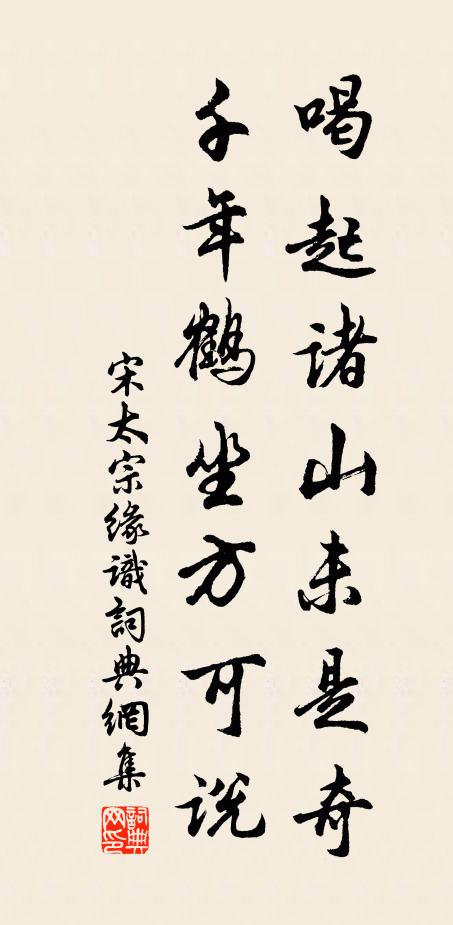 喝起诸山未是奇
千年鹤坐方可说
宋太宗缘識詞典網集
詞典網印